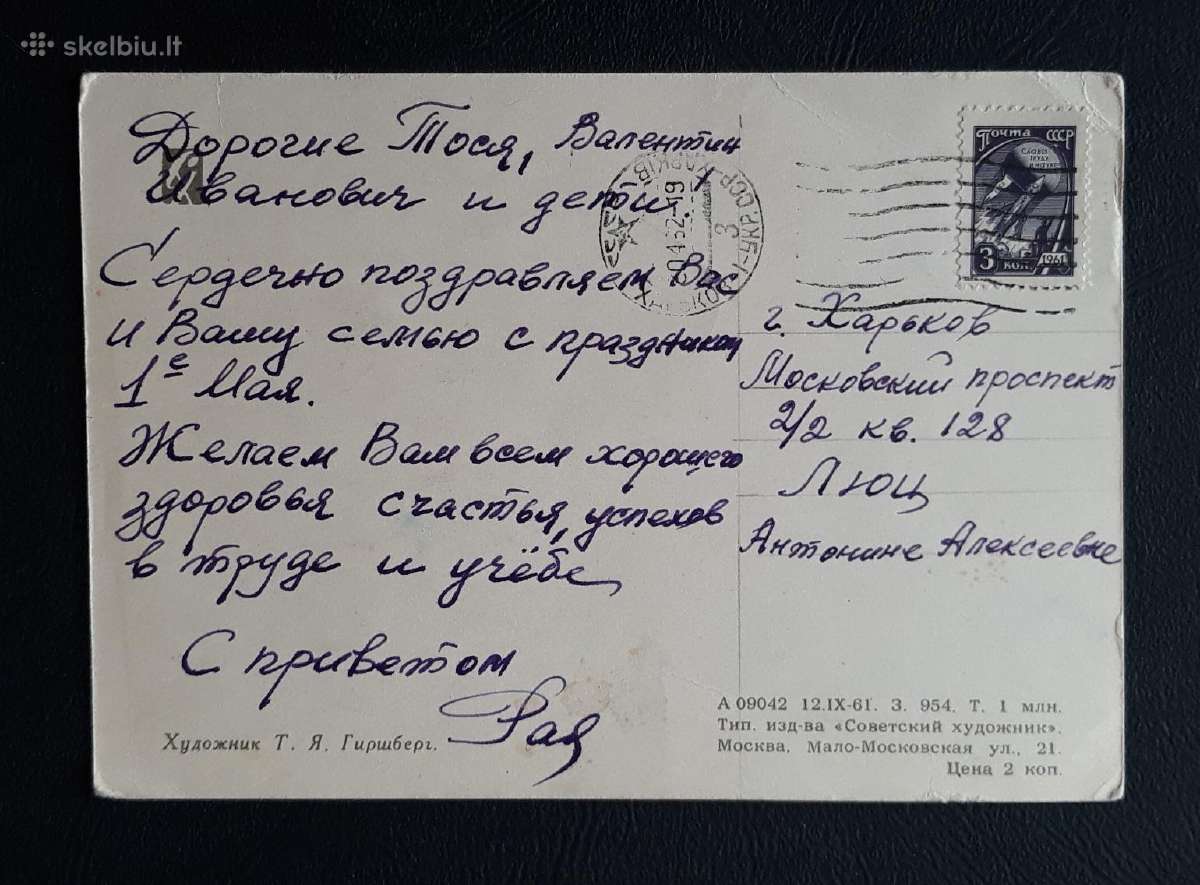 skelbiu.lt
Дорогие Тося, Валентин
Иванович и дети!
Сердечно поздравляем Вас
и Вашу семью с праздником
1е Мая.
Желаем Вам всем хорошего
здоровья счастья, успехов
в труде и учёбе
С приветом
Рая
Художник Т. Я. Гиршберг.
Почта СССР
СЛАВА
ТРУДУ
И НАУКЕ
3 КОП
1961
г. Харьков
Московский проспект
2/2 кв. 128
Люц
Антонине Алексеевне
А 09042 12.IX-61г. З. 954. Т. 1 млн.
Тип. изд-ва «Советский художник».
Москва, Мало-Московская ул., 21.
Цена 2 коп.